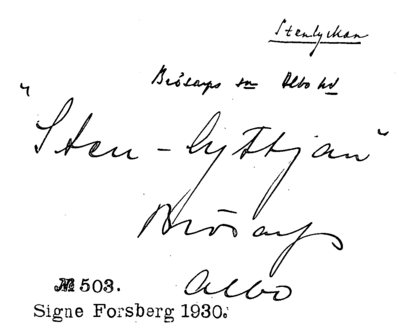 Stenlyckan
Brösarps sn Albo hd
"Sten-lyttjan"
Brösarps
Albo
№ 503.
Signe Forsberg 1930.